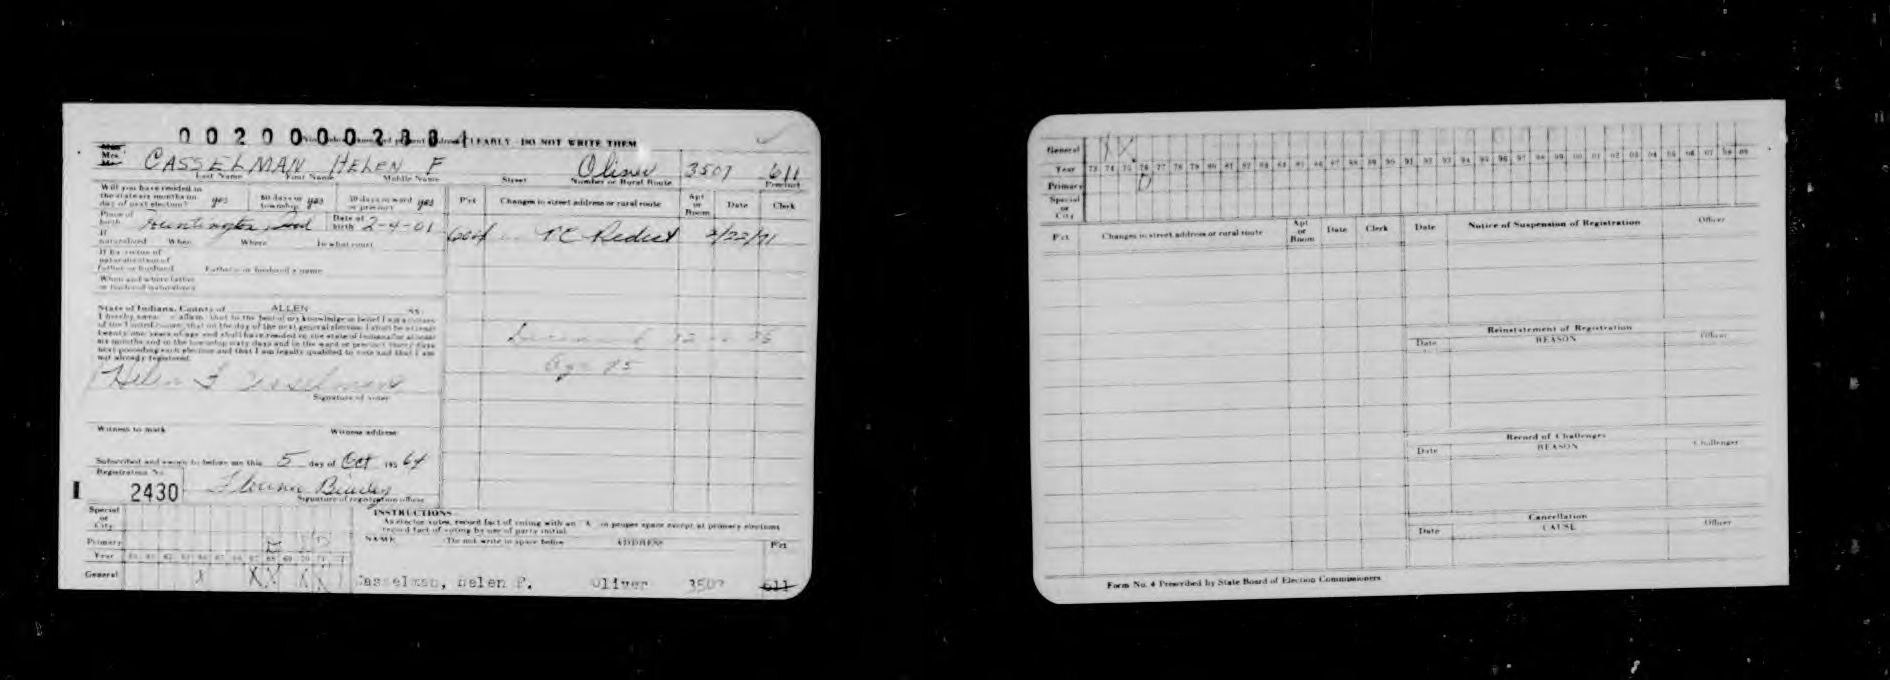 CLEARLY - DO NOT WRITE THEM
Mrs.
CASSELMAN HELEN F Oliver 3507 611
Last Name First Name Middle Name Street Number or Rural Route Precinct
Will you have resided in
the state six months on
day of next election? yes 60 days in township yes 30 days in ward or precinct yes
P'ct Changes in street address or rural route Apt or Room Date Clerk
Place of birth Huntington, Ind Date of birth 2-4-01
PC Redist 2/22/71
If naturalized When Where In what court
If by virtue of
naturalization of
father or husband Father's or husband's name
When and where father
or husband naturalized
State of Indiana, County of ALLEN SS:
I hereby swear or affirm that to the best of my knowledge or belief I am a citizen
of the United States, that on the day of the next general election I shall be at least
twenty-one years of age and shall have resided in the state of Indiana for at least
six months and in the township sixty days and in the ward or precinct thirty days
next preceding such election and that I am legally qualified to vote and that I am
not already registered.
Age 85
Helen F Casselman
Signature of voter
Witness to mark Witness address
Subscribed and sworn to before me this 5 day of Oct 64
Registration No.
2430
Signature of registration officer
Special
or
City
Primary
Year
General X X X X X
INSTRUCTIONS
As elector votes, record fact of voting with an X in proper space except at primary elections
record fact of voting by use of party initial.
NAME (Do not write in space below) ADDRESS P'ct
Casselman, Helen F. Oliver 3507 611
General X X
Year 73 74 75 76 77 78 79 80 81 82 83 84 85 86 87 88 89 90 91 92 93 94 95 96 97 98 99 00 01 02 03 04 05 06 07 08 09
Primary D
Special
or
City
P'ct Changes in street address or rural route Apt or Room Date Clerk
Date Notice of Suspension of Registration Officer
Reinstatement of Registration
Date REASON Officer
Record of Challenges
Date REASON Challenger
Cancellation
Date CAUSE Officer
Form No. 4 Prescribed by State Board of Election Commissioners